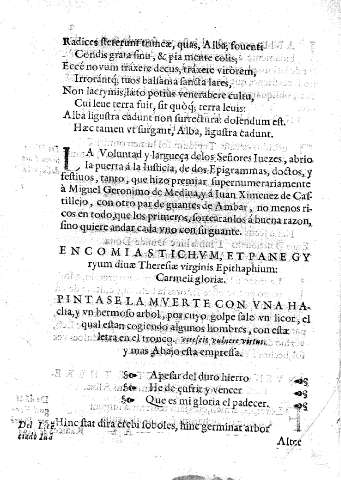 Radices steterunt truncæ, quas, Alba, fouenti
Condis grata sinu, & pia mente colis;
Ecce novum traxere decus, traxere virorem,
Irrorantq; tuos balsama sancta lares,
Non lacrymis, læto potius venerabere cultu,
Cui leue terra fuit, sit quòq; terra leuis:
Alba ligustra cadunt non surrectura: dolendum est.
Hæc tamen vt surgant, Alba, ligustra cadunt.
LA Voluntad y largueça delos Señores Iuezes, abrio
la puerta á la Iusticia, de dos Epigrammas, doctos, y
festiuos, tanto, que hizo premiar supernumerariamente
à Miguel Geronimo de Medina, y á Iuan Ximenez de Cas-
tillejo, con otro par de guantes de Ambar, no menos ri-
cos en todo, que los primeros, sortearanlos á buena razon,
sino quiere andar cada vno con su guante.
ENCOMIASTICHVM, ET PANEGY
ryum diuæ Theresiæ virginis Epithaphium:
Carmeli gloriæ.
PINTASE LA MVERTE CON VNA HA-
cha, y vn hermoso arbol, por cuyo golpe sale vn licor, el
qual estan cogiendo algunos hombres, con esta
letra en el tronco. vulnere virtus.
y mas Abajo esta empressa.
Apesar del duro hierro
He de çufrir y vencer
Que es mi gloria el padecer.
Hinc stat dira efebi soboles, hinc germinat arbor
Altce